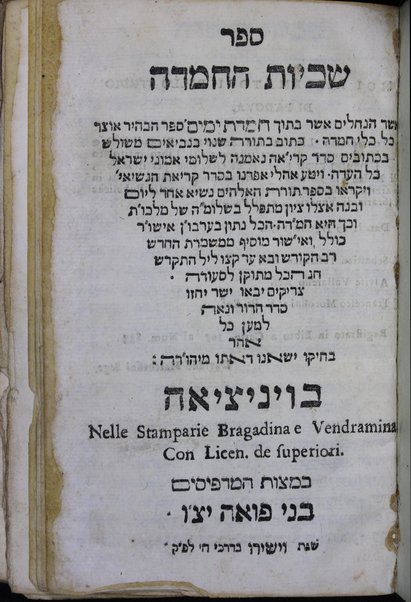 ספר
שכיות החמדה
אשר הנחלים אשר בתוך חמדת ימים ספר הבהיר אוצר
כל כלי חמדה · כתוב בתורה שנוי בנביאים משולש
בכתובים סדר קריאה נאמנה לשלומי אמוני ישראל
כל העדה · ויטע אהלי אפדנו בסדר קריאת הנשיאי׳
ויקראו בספר תורת האלהים נשיא אחד ליום
ובנה אצלו ציון מתפלל בשלומ״ה של מלכו״ת
וכך היא חמ״דה · הכל נתון בערבו״ן אישו״ר
כולל, ואי״שור מוסיף ממשמרת החדש
רב הקודש ובא עד קצו ליל התקדש
חג הכל מתוקן לסעודה ·
צדיקים יבאו ישר יחזו
סדר הדור ונאה
למען כל
אחד
בחיקו ישאנו דאתו מיהודה :
בויניציאה
Nelle Stamparie Bragadina e Vendramina
Con Licen. de superiori.
במצות המדפיסים
בני פואה יצ״ו ·
שנת וישירו בדרכי ה׳ לפ״ק